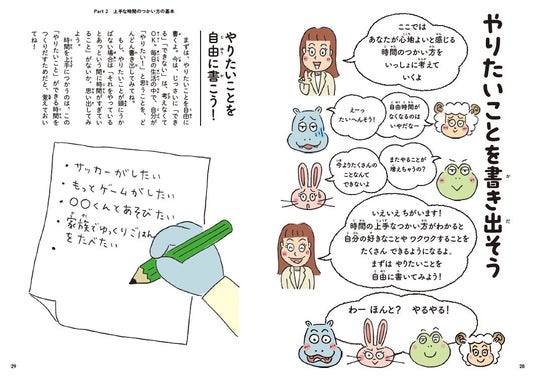 やりたいことを書き出そう
ここでは
あなたが心地よいと感じる
時間のつかい方を
いっしょに考えて
いくよ
自由時間が
なくなるのは
いやだな~
えーっ
たいへんそう!
またやることが
増えちゃうの?
今よりたくさんの
ことなんて
できないよ
いえいえ ちがいます!
時間の上手なつかい方がわかると
自分の好きなことや ワクワクすることを
たくさん できるようになるよ。
まずは やりたいことを
自由に書いてみよう!
わー ほんと? やるやる!
28
Part 2 上手な時間のつかい方の基本
やりたいことを
自由に書こう!
まずは、やりたいことを自由に
書くよ。今は、じっさいに「でき
る」「できない」は、考えなくて
OK。毎日の生活の中で、自分が
「やりたい!」と思うことを、ど
んどん書き出してみてね。
もし、やりたいことが頭にうか
ばない場合は「それをやっている
とあっという間に時間がすぎてい
ること」がないか、思い出してみ
よう。
時間を上手につかうのは、この
「やりたいこと」ができる時間を
つくりだすためだと、覚えておい
てね!
• サッカーがしたい
• もってゲームがしたい
• ○○くんとあそびたい
• 家族でゆっくりごはん
をたべたい
29